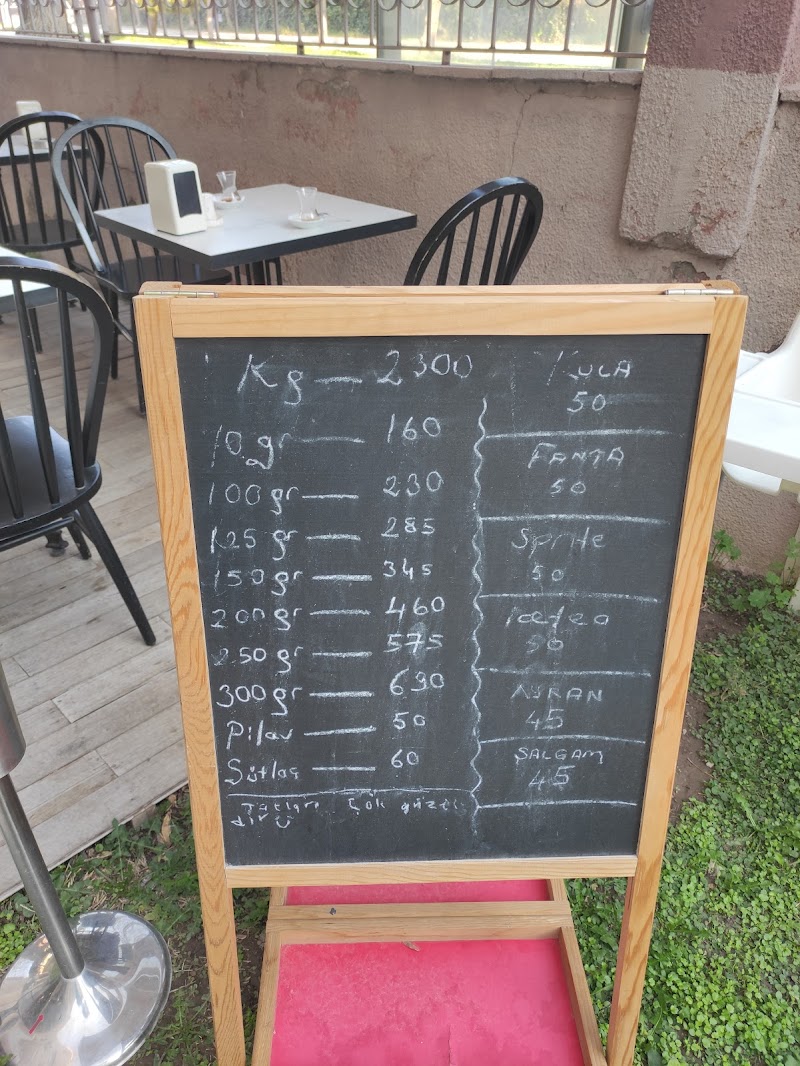 1 Kg — 2300
70 gr — 160
100 gr — 230
125 gr — 285
150 gr — 345
200 gr — 460
250 gr — 575
300 gr — 690
Pilav — 50
Sütlaç — 60
çok güzel
dir
KOLA
50
FANTA
50
Sprite
50
Icetea
50
AYRAN
45
ŞALGAM
45